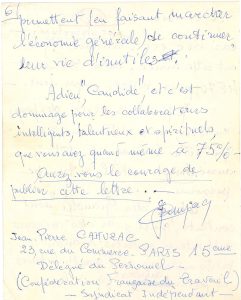 6)
permettent (en faisant marcher
l'économie générale) de continuer
leur vie d'inutiles.
Adieu, "Candide", et c'est
dommage pour les collaborateurs
intelligents, talentueux et spirituels,
que vous avez quand même à 75% -
Aurez vous le courage de
publier cette lettre...
Jean Pierre CAHUZAC
23, rue du Commerce - PARIS 15ème
Délégué du Personnel -
(Confédération Française du Travail)
- Syndicat Indépendant -